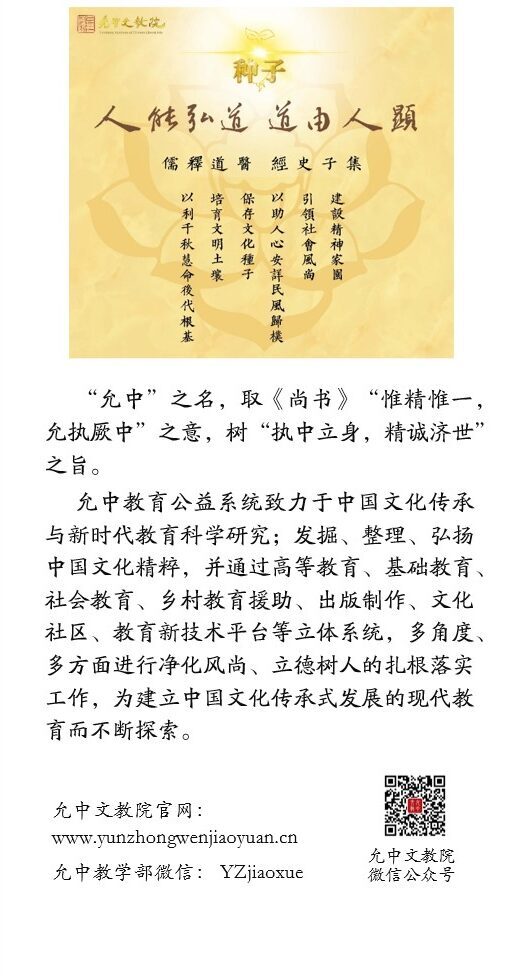 允中文教院
种子
人能弘道 道由人顯
儒釋道醫 經史子集
建設精神家園
引領社會風尚
以助人心安詳民風歸樸
保存文化種子
培育文明土壤
以利千秋慧命後代根基
“允中”之名，取《尚书》“惟精惟一，
允执厥中”之意，树“执中立身，精诚济世”
之旨。
允中教育公益系统致力于中国文化传承
与新时代教育科学研究；发掘、整理、弘扬
中国文化精粹，并通过高等教育、基础教育、
社会教育、乡村教育援助、出版制作、文化
社区、教育新技术平台等立体系统，多角度、
多方面进行净化风尚、立德树人的扎根落实
工作，为建立中国文化传承式发展的现代教
育而不断探索。
允中文教院官网：
www.yunzhongwenjiaoyuan.cn
允中教学部微信： YZjiaoxue
允中文教院
微信公众号